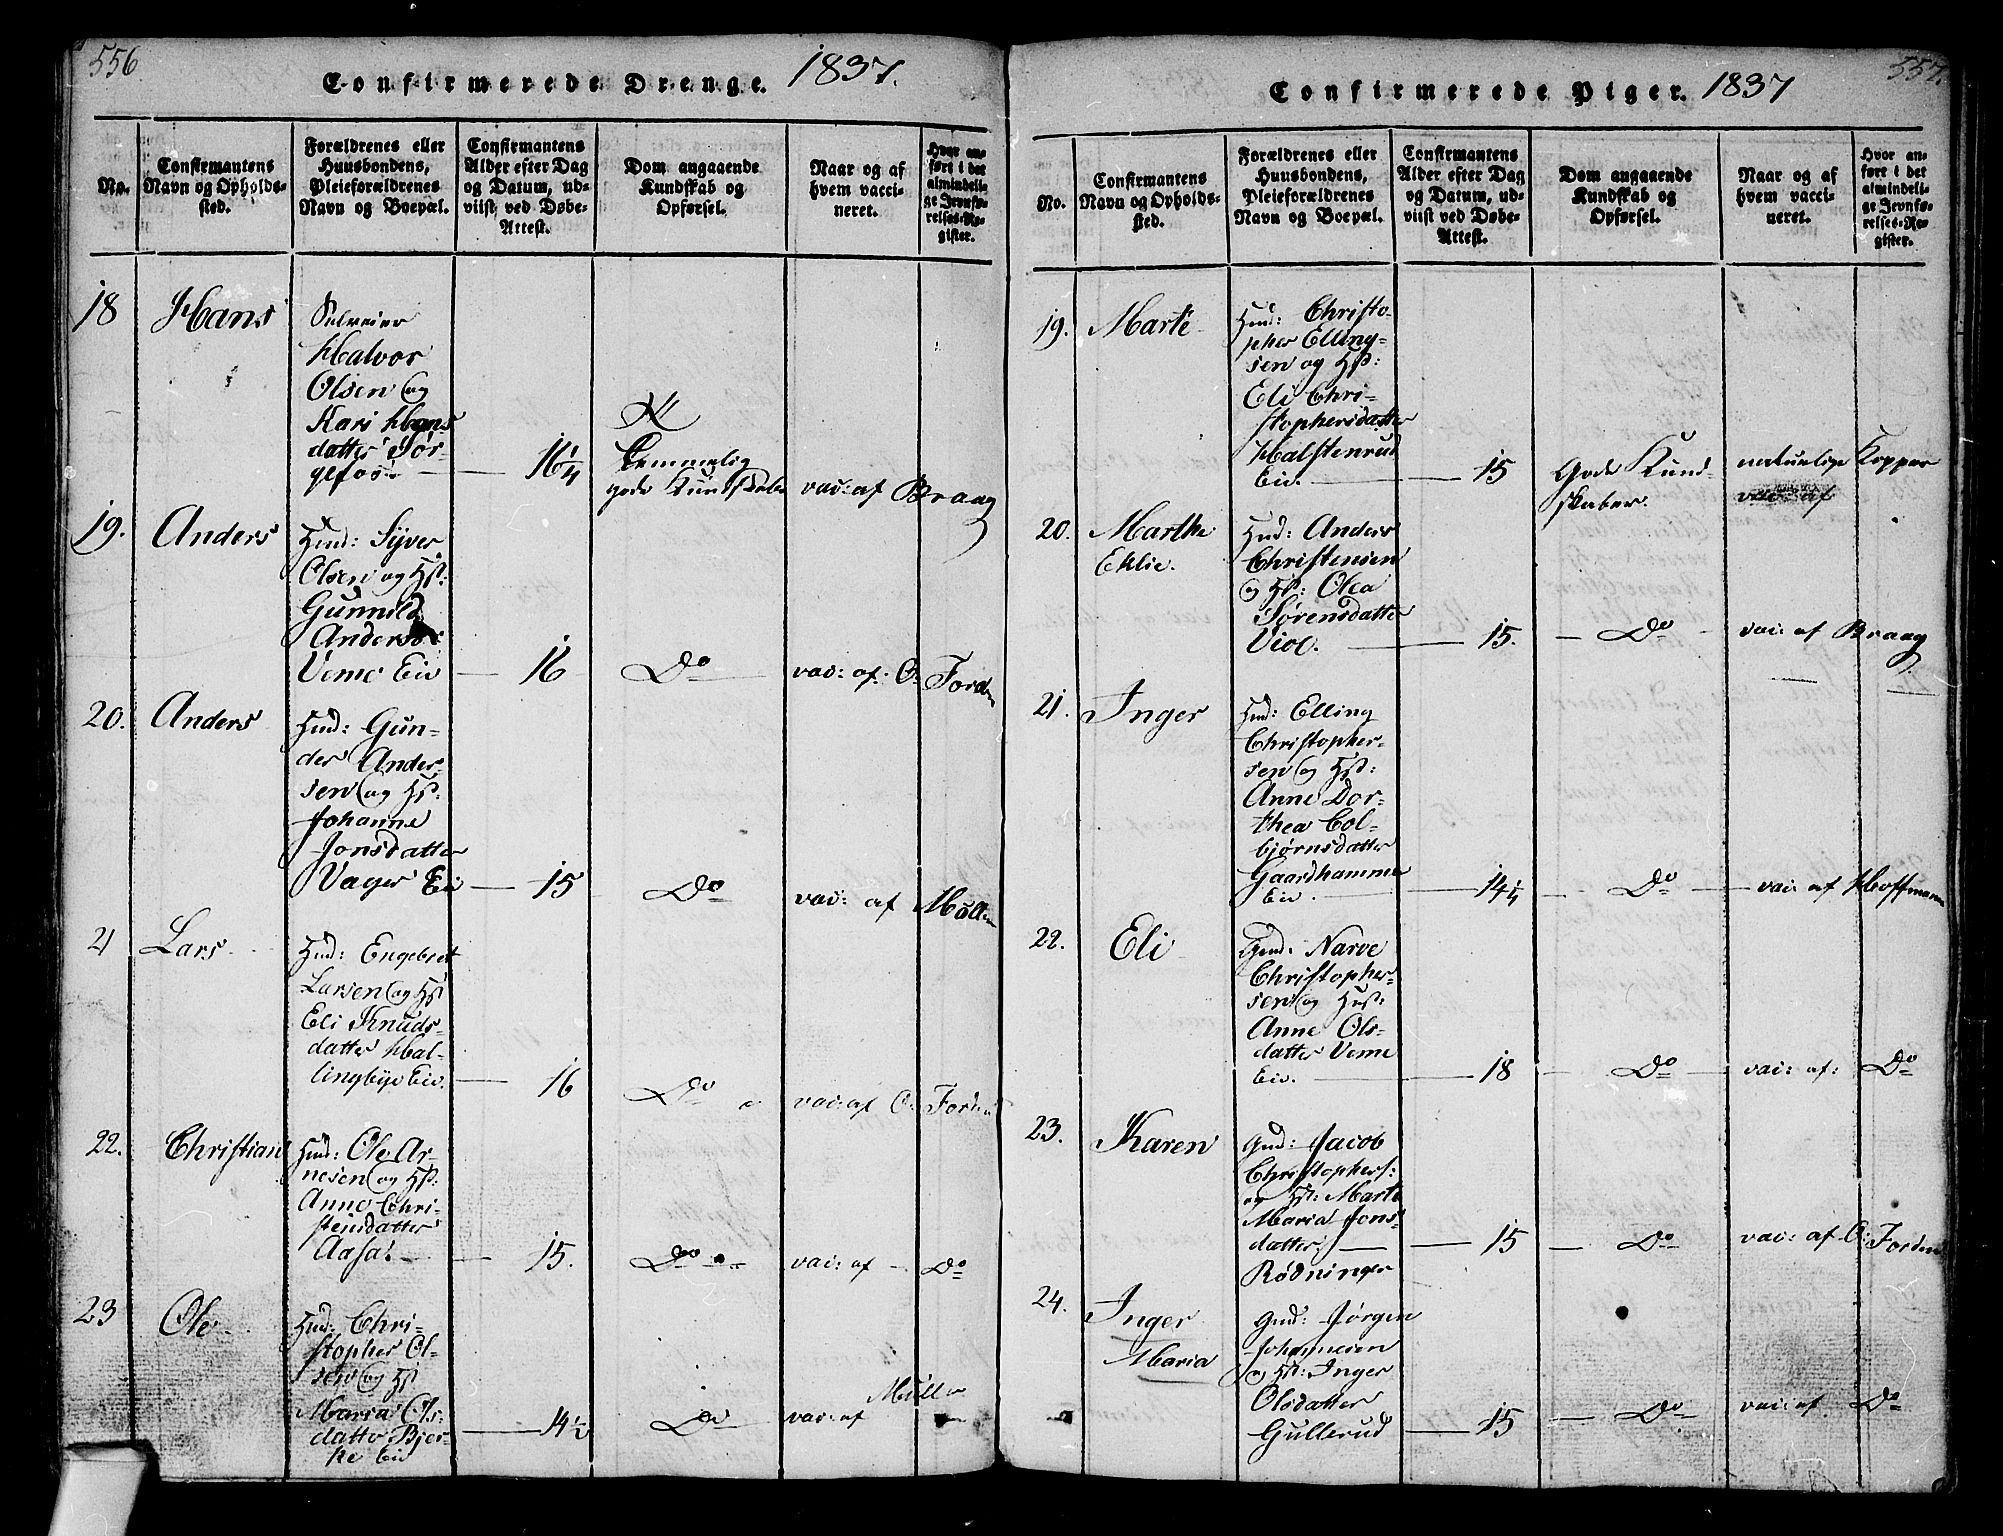 556
Confirmerede Drenge. 1837.
No.
Confirmantens
Navn og Opholds-
sted.
Forældrenes eller
Huusbondens,
Pleieforældrenes
Navn og Boepæl.
Confirmantens
Alder efter Dag
og Datum, ud-
viist ved Døbe-
Attest.
Dom angaaende
Kundskab og
Opførsel.
Naar og af
hvem vacci-
neret.
Hvor an-
ført i det
almindeli-
ge Jevnfø-
relses-Re-
gister.
18 Hans
Selveier
Halvor
Olsen og
Kari Hans
datter Sør-
gefos.
16 1/4
Temmelig
gode Kundskaber
vac: af Braag
19. Anders
Hmd: Syver
Olsen og Hst:
Gunnild
Andersd:
Veme Eie
16
Do
vac: af: O: Forden
20. Anders
Hmd: Gun-
der Ander-
sen og Hst:
Johanne
Jonsdatter
Vager Eie
15
Do
vac: af
21 Lars
Hmd: Engebret
Larsen og Hst
Eli Knuds-
datter Hal-
lingbye Eie.
16
Do
vac: af O: Forden
22. Christian
Hmd: Ole Ar-
nesen og Hst:
Anne Chri-
stensdatter
Aasa
15.
Do
vac: af
Do
23 Ole
Hmd: Chri-
stopher Ol-
sen og Hst
Maria Ols-
datter Bjer-
ke Eie
14 1/2
Do
vac: af Muller
557.
Confirmerede Piger. 1837
No.
Confirmantens
Navn og Opholds-
sted.
Forældrenes eller
Huusbondens,
Pleieforældrenes
Navn og Boepæl.
Confirmantens
Alder efter Dag
og Datum, ud-
viist ved Døbe-
Attest.
Dom angaaende
Kundskab og
Opførsel.
Naar og af
hvem vacci-
neret.
Hvor an-
ført i det
almindeli-
ge Jevnfø-
relses-Re-
gister.
19. Marte
Hmd: Christo-
pher Elling-
sen og Hst:
Eli Chri-
stophersdatter
Halstenrud
Eie.
15
Gode Kund-
skaber.
naturlige Kopper
vac: af
20. Marthe
Eklie.
Hmd: Anders
Christensen
og Hst: Olea
Sørensdatter
Viol.
15.
Do
vac: af Braag
21. Inger
Hmd: Elling
Christopher-
sen og Hst:
Anne Dor-
thea Col-
bjørnsdatter
Gaardhamme
Eie.
14 1/4
Do
vac: af Hoffmann
22. Eli
Gmd: Narve
Christopher-
sen og Hust:
Anne Ols-
datter Veme
Eie.
18
Do
vac: af:
Do
23. Karen
Gmd: Jacob
Christophers:
og Hst: Marte
Maria Jons-
datter,
Rødninger
15
Do
vac: af O: Forden
24. Inger
Maria
Gmd: Jørgen
Johannesen
og Hst: Inger
Olsdatter
Gullerud
15
Do
vac: af.
Do